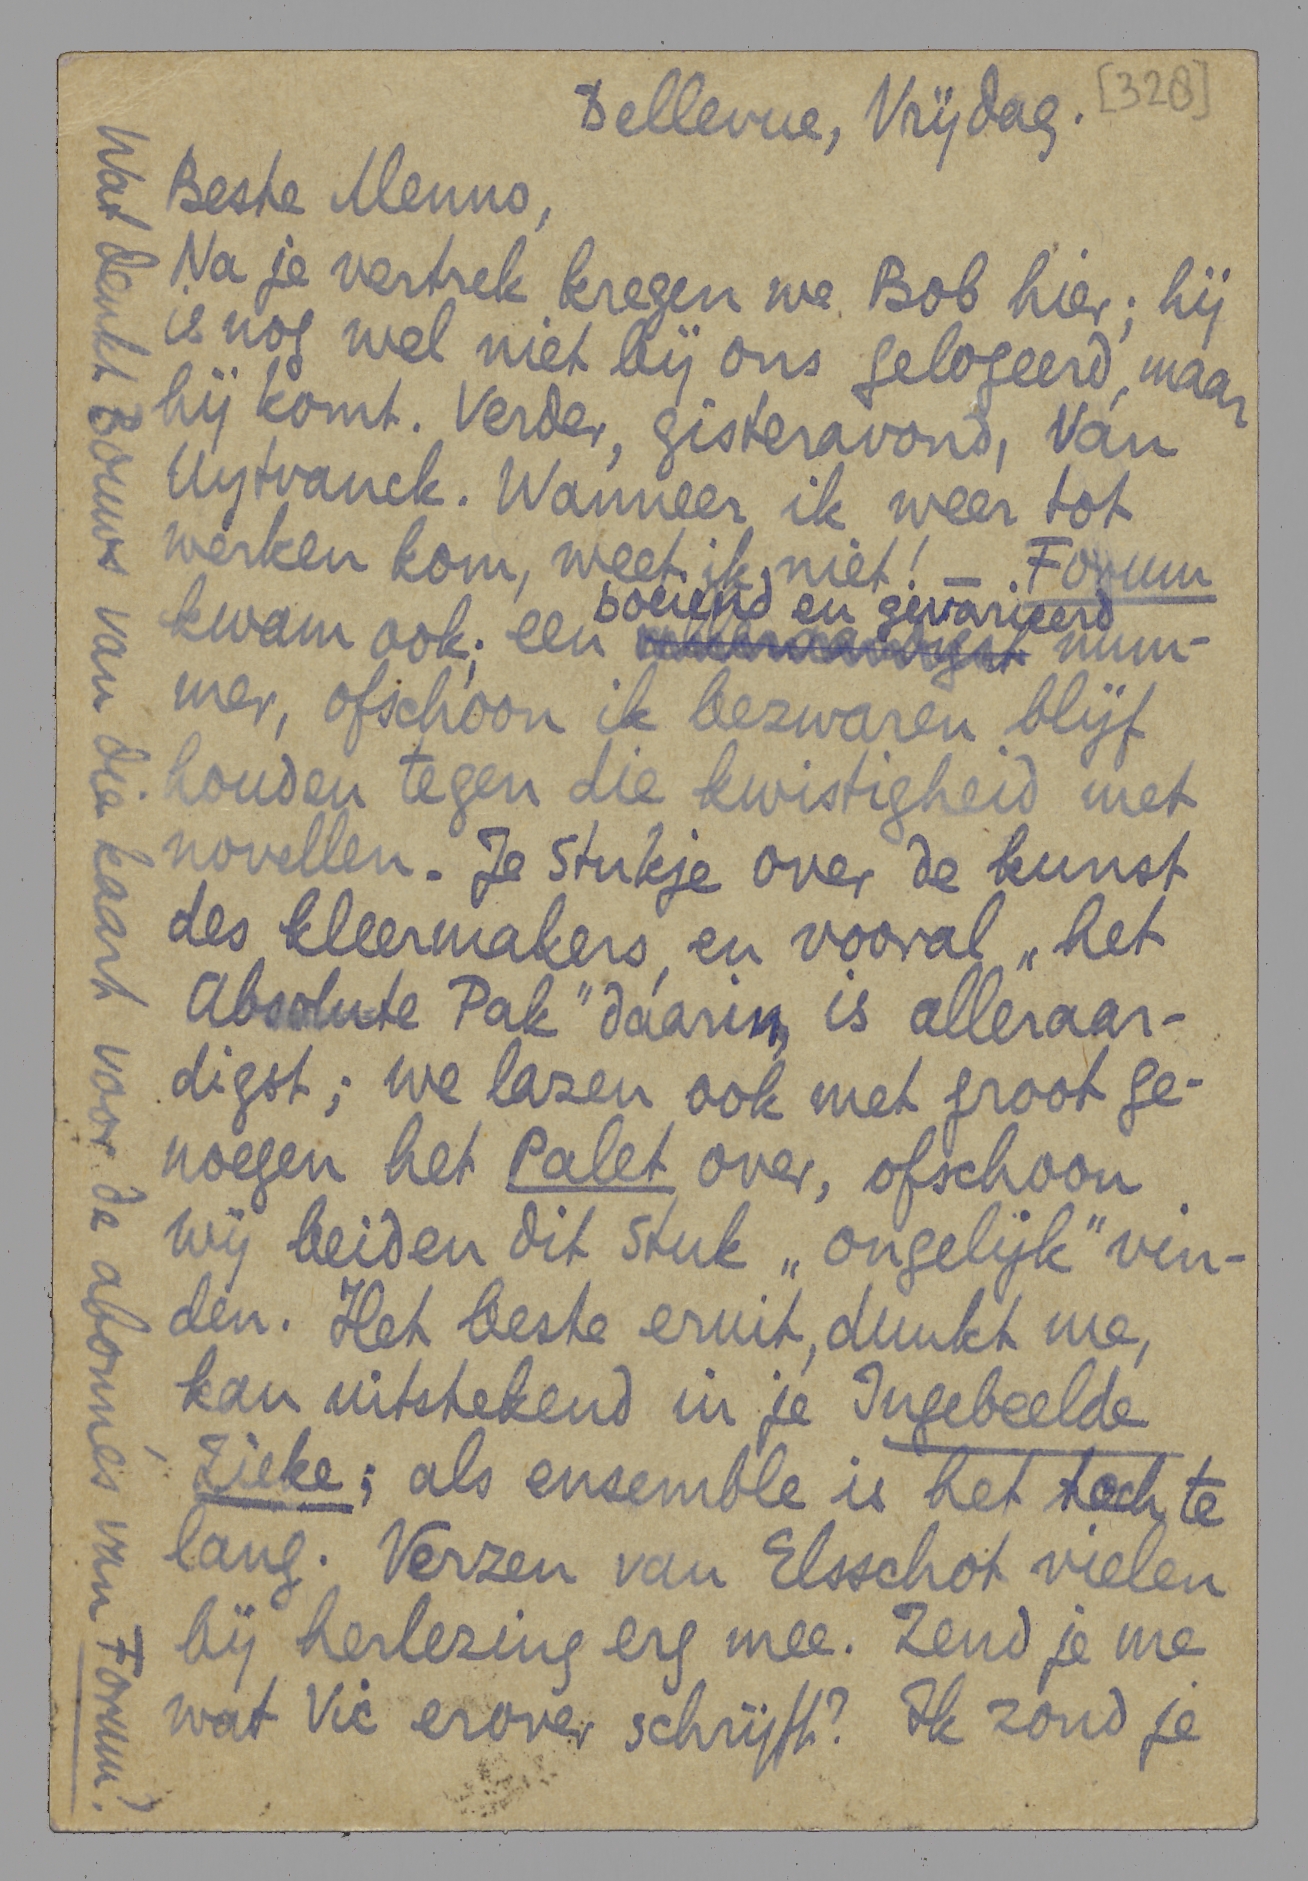 [328]
Bellevue, Vrijdag.
Beste Menno,
Na je vertrek kregen we Bob hier; hij
is nog wel niet bij ons gelogeerd, maar
hij komt. Verder, gisteravond, Van
Uytvanck. Wanneer ik weer tot
werken kom, weet ik niet! – Forum
boeiend en gevarieerd
kwam ook; een num-
mer, ofschoon ik bezwaren blijf
houden tegen die kwistigheid met
novellen. Je stukje over de kunst
des kleermakers, en vooral „het
Absolute Pak" dáarin, is alleraar-
digst; we lazen ook met groot ge-
noegen het Palet over, ofschoon
wij beiden dit stuk „ongelijk" vin-
den. Het beste eruit, dunkt me,
kan uitstekend in je Ingebeelde
Zieke; als ensemble is het toch te
lang. Verzen van Elsschot vielen
bij herlezing erg mee. Zend je me
wat Vic erover schrijft? Ik zond je
Wat denkt Bouws van die kaart voor de abonné's van Forum?